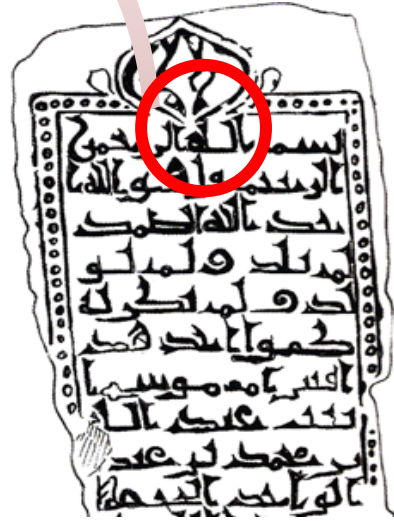 بسم الله الرحمن
الرحيم قل هو الله ا
حد الله الصمد
لم يلد و لم يو
لد و لم يكن له
كفوا احد هذ
ا قبر ام موسى ا
بنت عبد
بن محمد بن عبد
الواحد